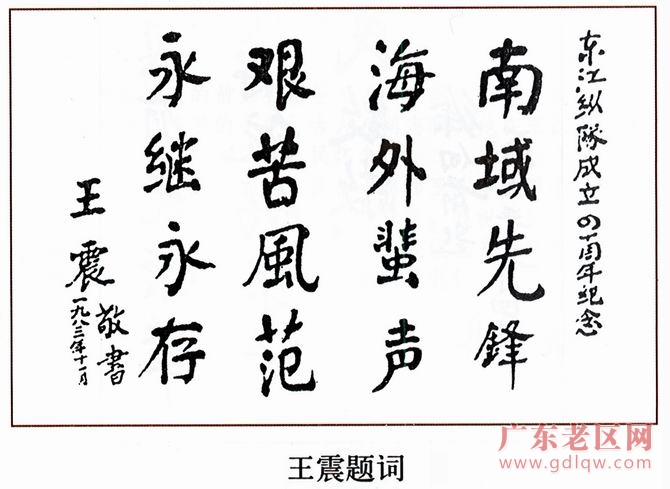 东江纵隊成立四十周年纪念
南域先鋒
海外蜚声
艰苦風范
永继永存
王震敬書
一九八三年十一月
广东老区网
www.gdlqw.com
王震题词